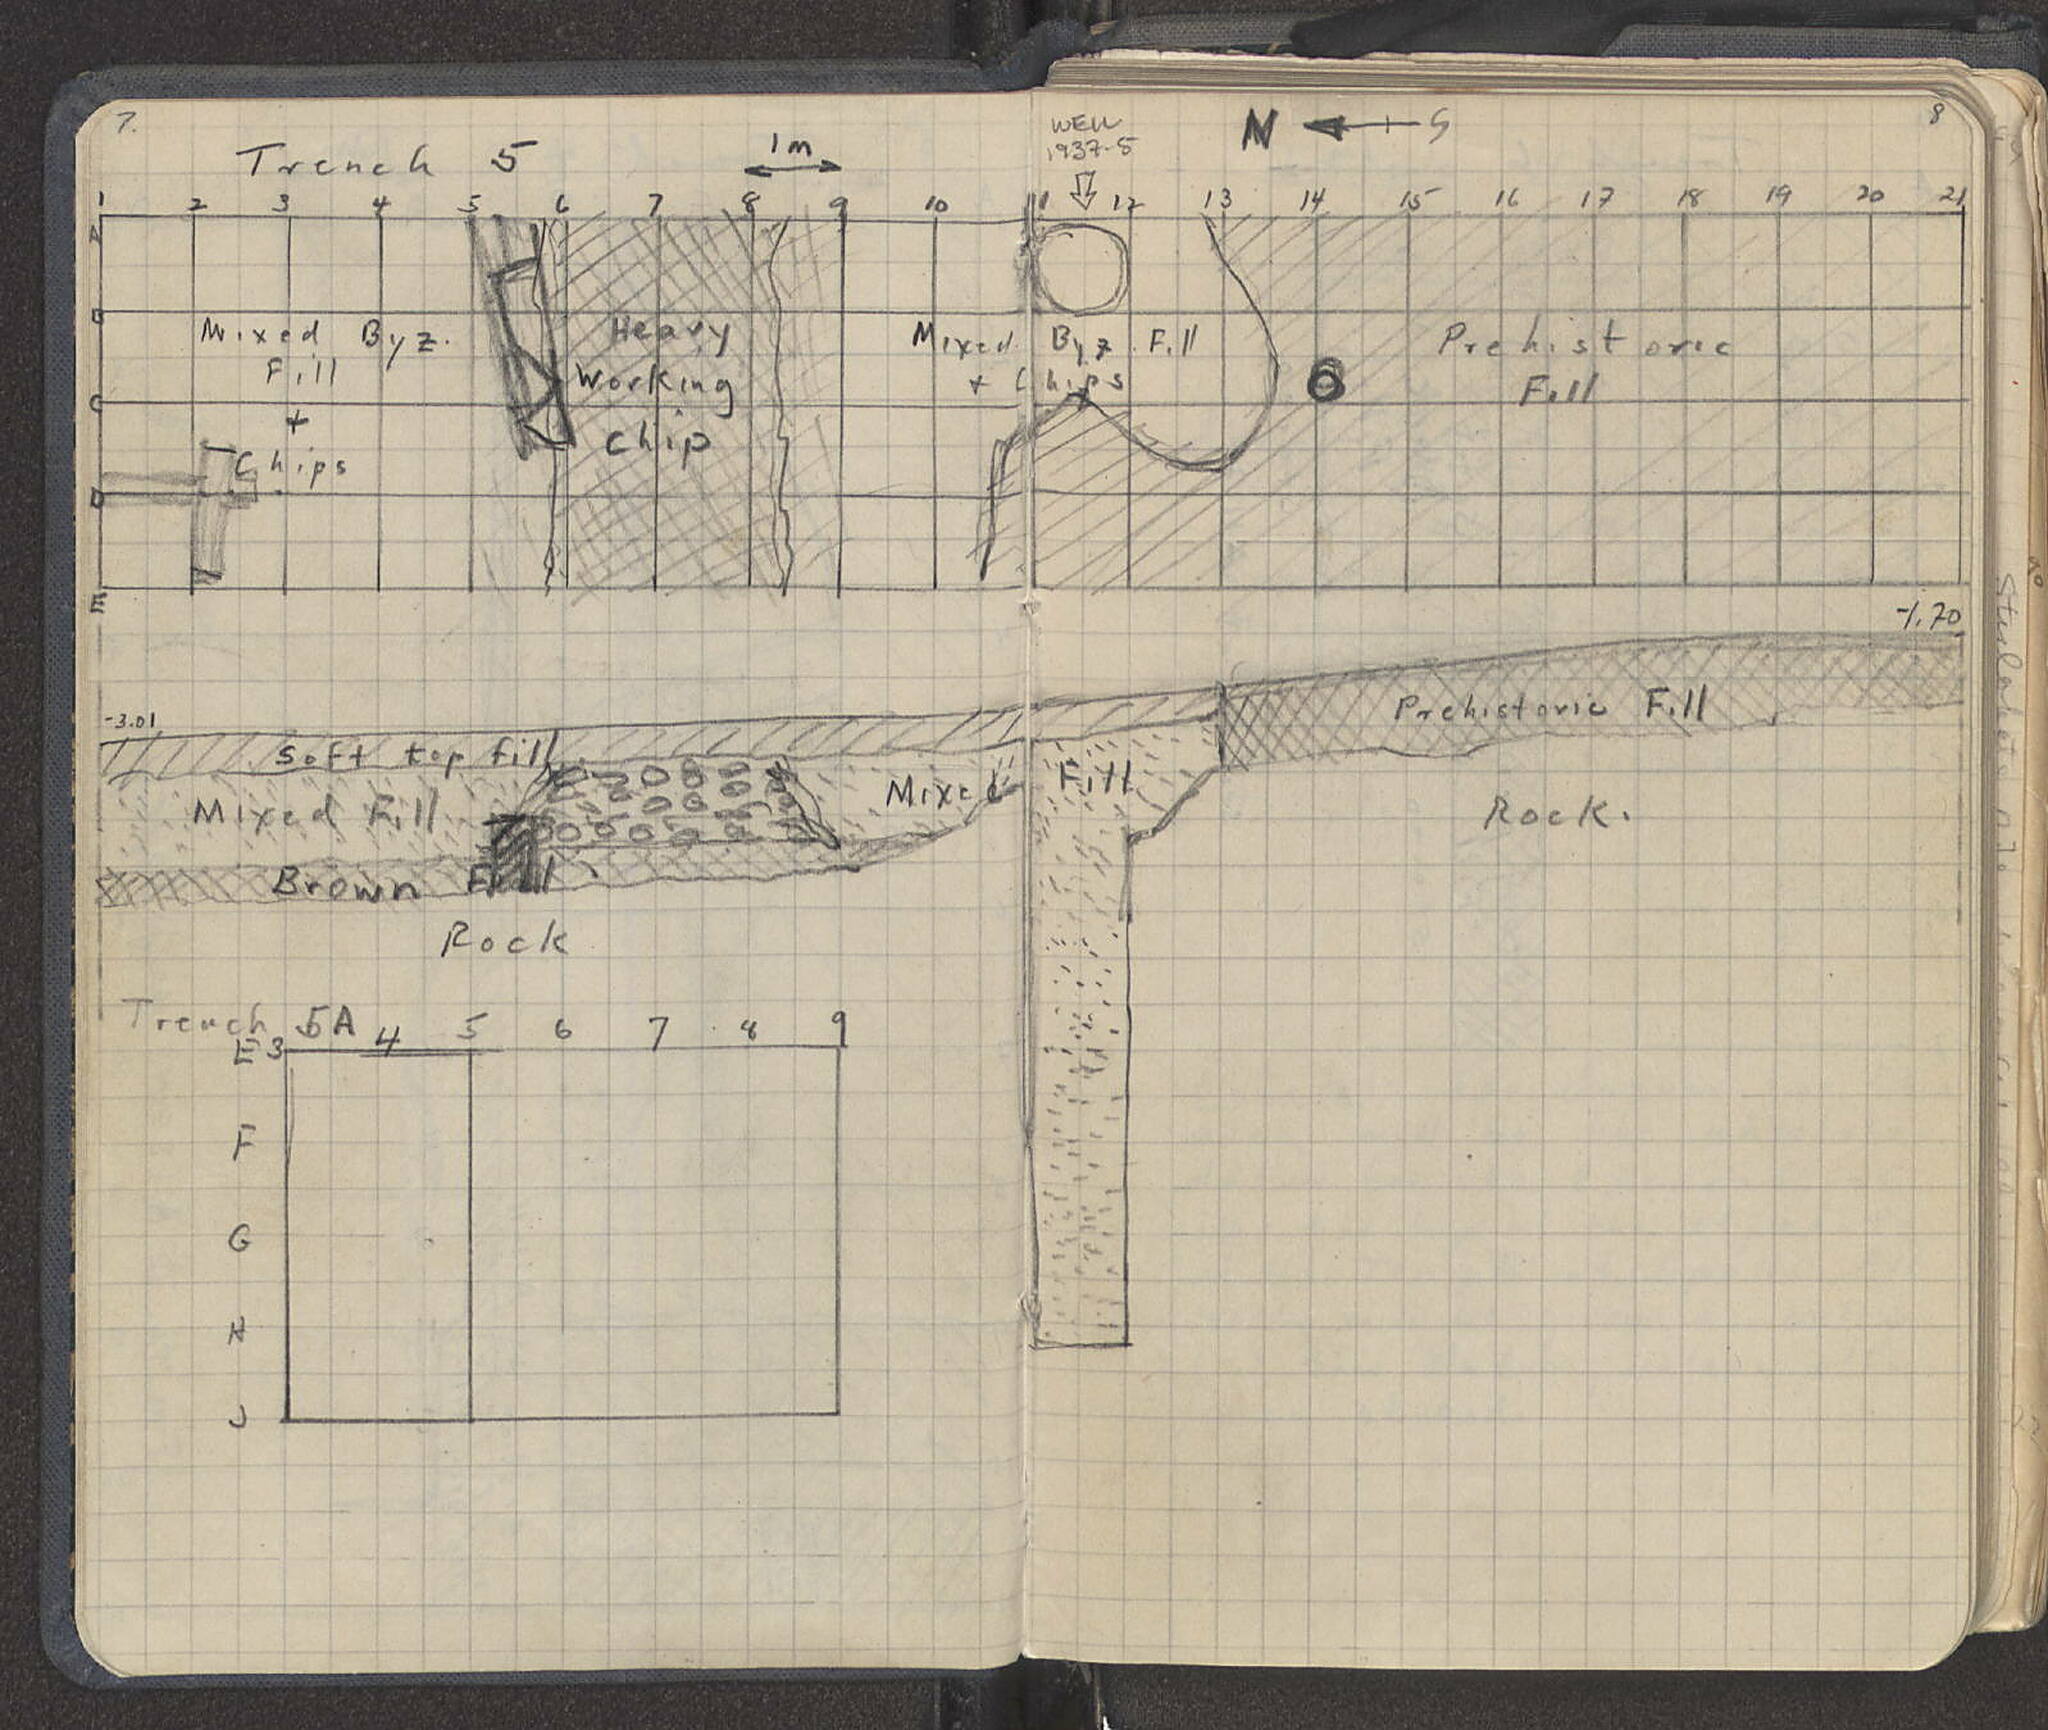 7.
8
Trench 5
1m
WELL
1937-5
N S
1 2 3 4 5 6 7 8 9 10 11 12 13 14 15 16 17 18 19 20 21
A
B
C
D
E
Mixed Byz.
Fill
+
Chips
Heavy
Working
Chip
Mixed Byz Fill
+ Chips
Prehistoric
Fill
-1.70
-3.01
Soft top fill
Mixed Fill
Brown Fill
Rock
Mixed Fill
Prehistoric Fill
Rock.
Trench 5A
3 4 5 6 7 8 9
E
F
G
H
J